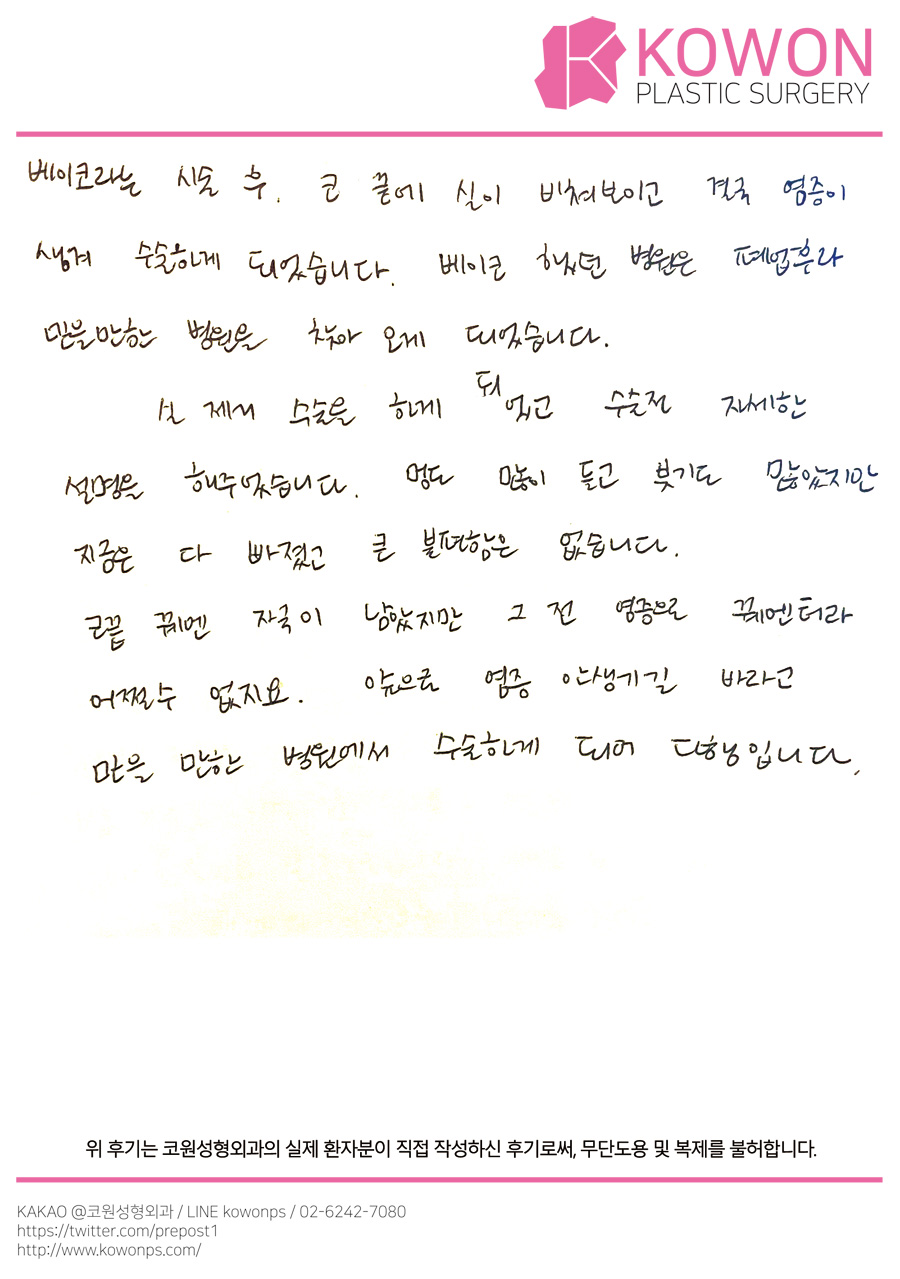 KOWON
PLASTIC SURGERY
베이코라는 시술 후. 코 끝에 실이 비쳐보이고 결국 염증이
생겨 수술하게 되었습니다. 베이코 했던 병원은 폐업후라
믿을만한 병원을 찾아 오게 되었습니다.
실제 수술을 하게 되었고 수술전 자세한
설명을 해주었습니다. 멍도 많이 들고 붓기도 많았지만
지금은 다 빠졌고 큰 불편함은 없습니다.
코끝 꿰멘 자국이 남았지만 그 전 염증으로 꿰멘터라
어쩔수 없지요. 앞으로 염증 안생기길 바라고
믿을 만한 병원에서 수술하게 되어 다행입니다.
위 후기는 코원성형외과의 실제 환자분이 직접 작성하신 후기로써, 무단도용 및 복제를 불허합니다.
KAKAO @코원성형외과 / LINE kowonps / 02-6242-7080
https://twitter.com/prepost1
http://www.kowonps.com/